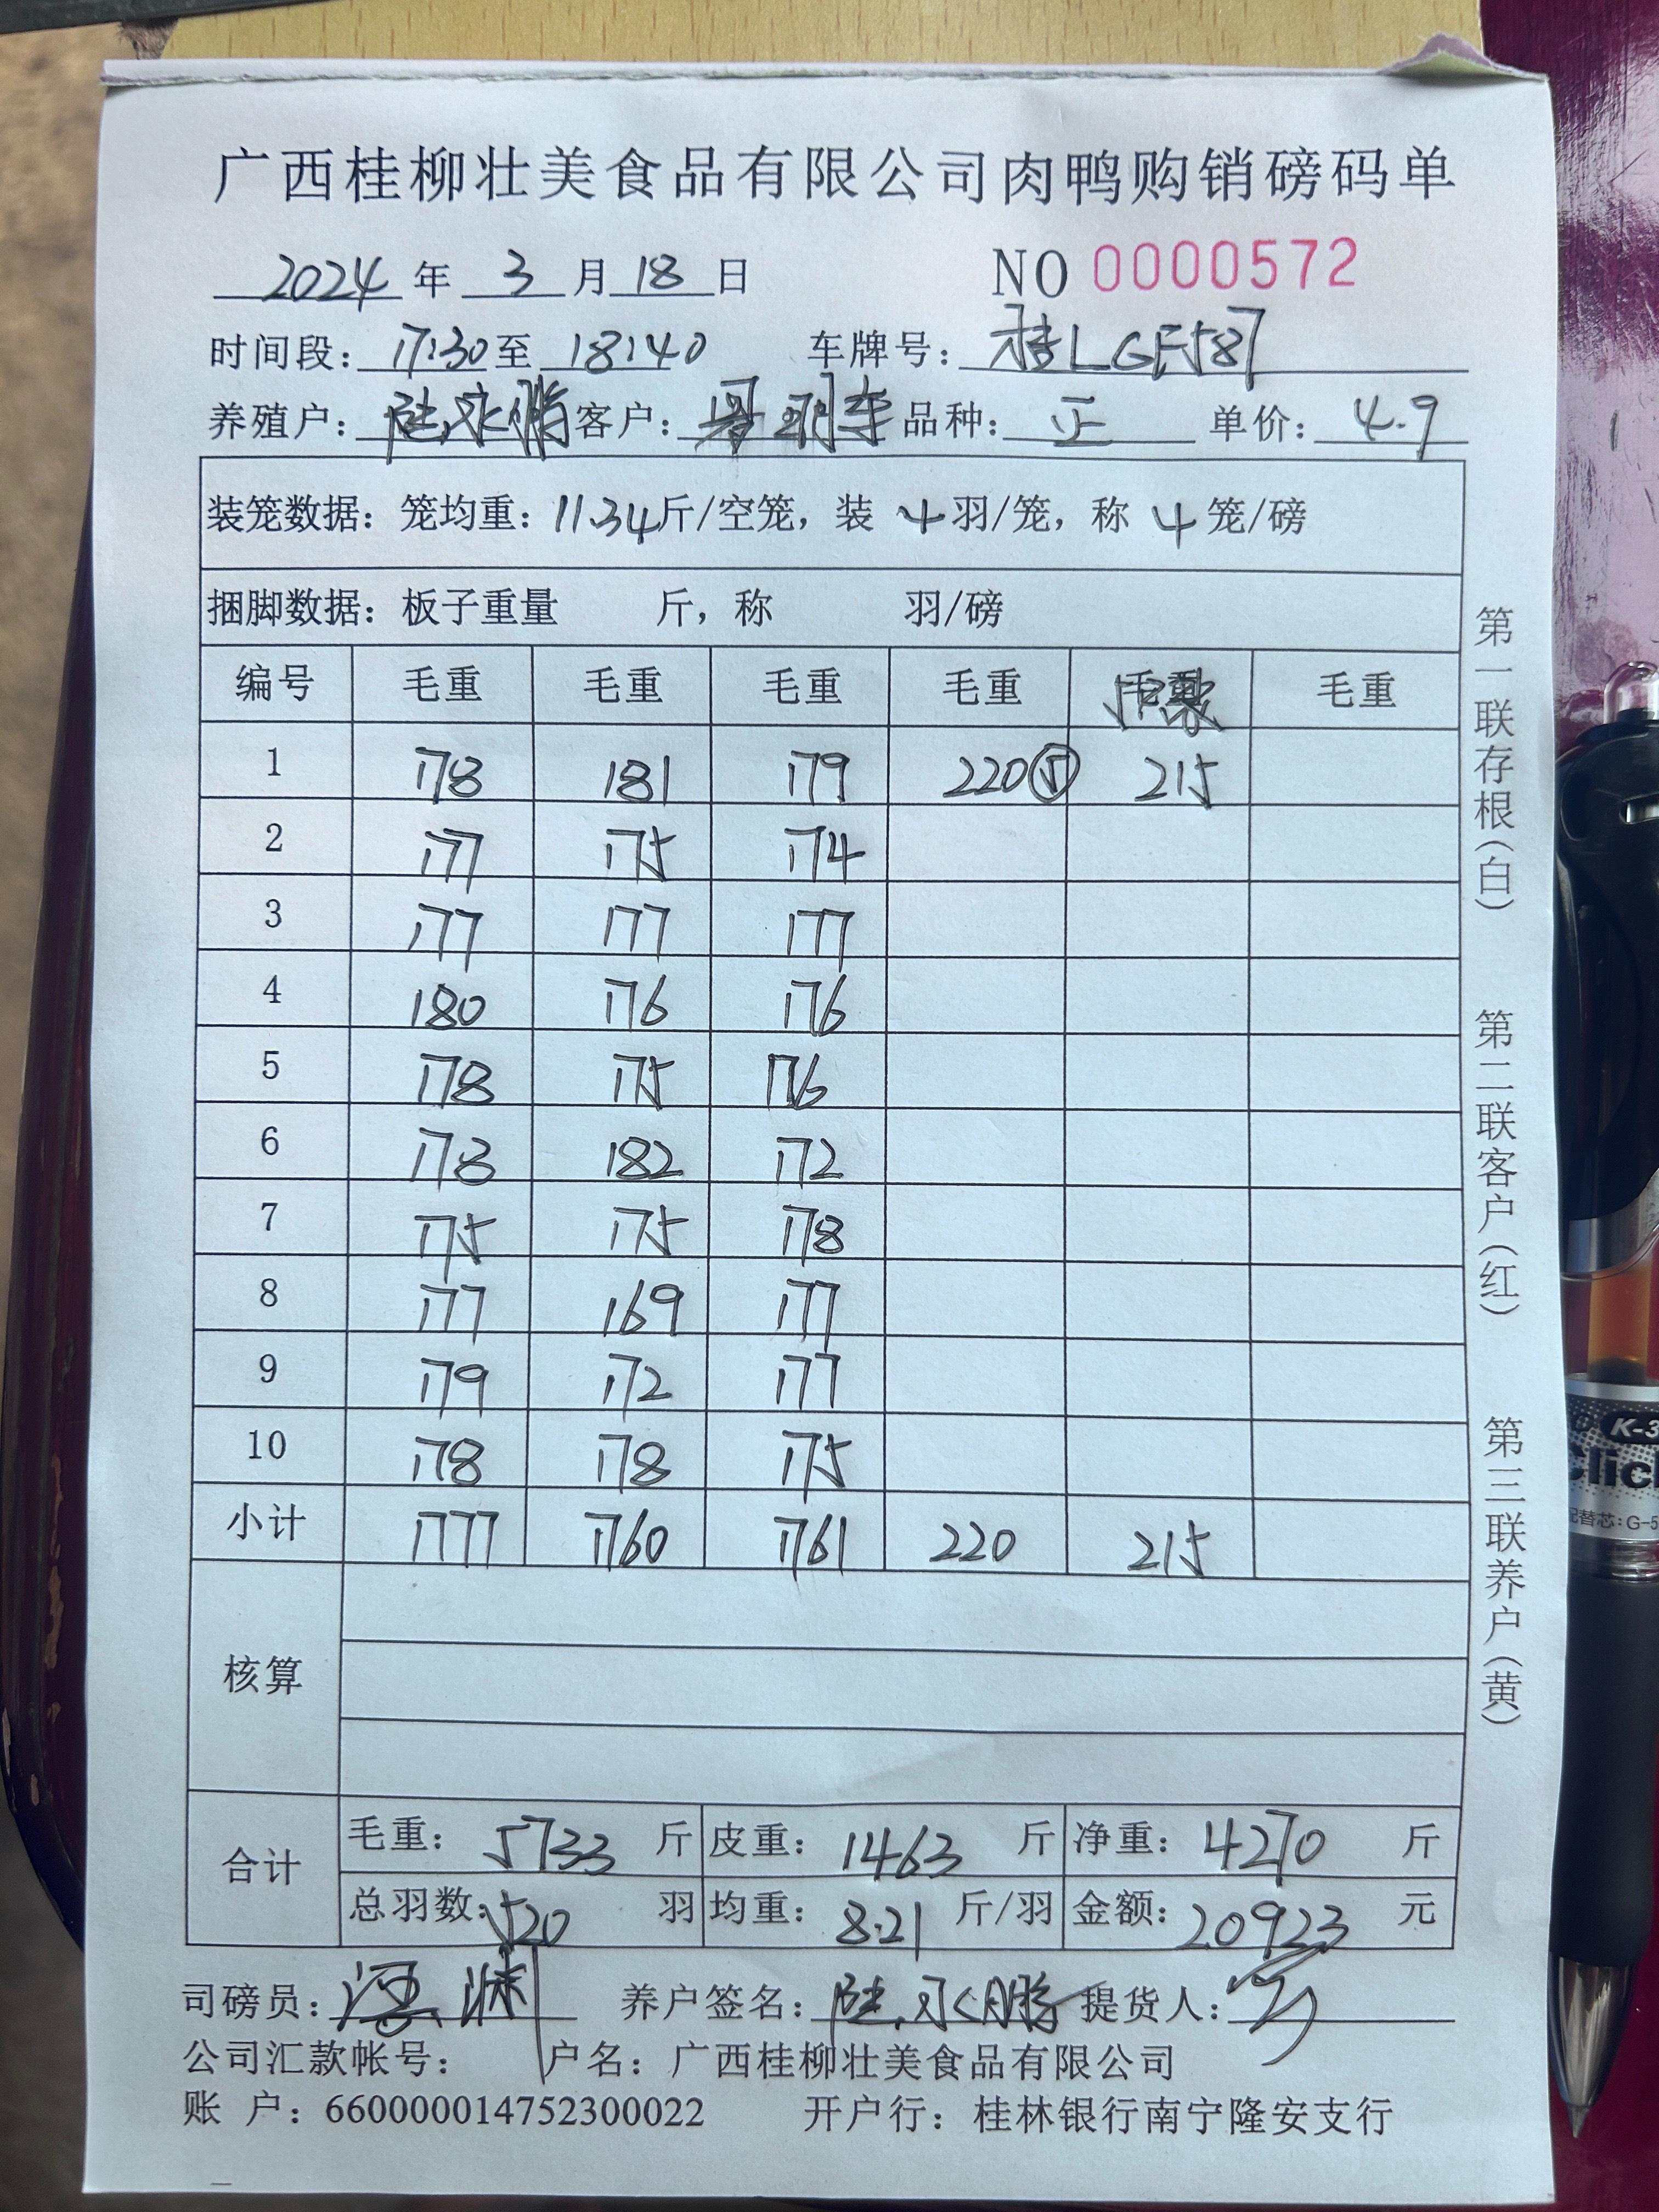 广西桂柳壮美食品有限公司肉鸭购销磅码单
2024 年 3 月 18 日 NO 0000572
时间段: 17:30 至 18:40 车牌号: 桂LGF587
养殖户: 陆永鹏 客户: 品种: 正 单价: 4.9
装笼数据: 笼均重: 11.34 斤/空笼, 装 4 羽/笼, 称 4 笼/磅
捆脚数据: 板子重量 斤, 称 羽/磅
编号 毛重 毛重 毛重 毛重 毛重
1 178 181 179 220⑤ 215
2 177 175 174
3 177 177 177
4 180 176 176
5 178 175 176
6 178 182 172
7 175 175 178
8 177 169 177
9 179 172 177
10 178 178 175
小计 1777 1760 1761 220 215
核算
合计 毛重: 5733 斤 皮重: 1463 斤 净重: 4270 斤
总羽数: 520 羽 均重: 8.21 斤/羽 金额: 20923 元
司磅员: 养户签名: 陆永鹏 提货人:
公司汇款帐号: 户名: 广西桂柳壮美食品有限公司
账 户: 660000014752300022 开户行: 桂林银行南宁隆安支行
第一联存根(白) 第二联客户(红) 第三联养户(黄)
K-3
Click
配替芯:G-5